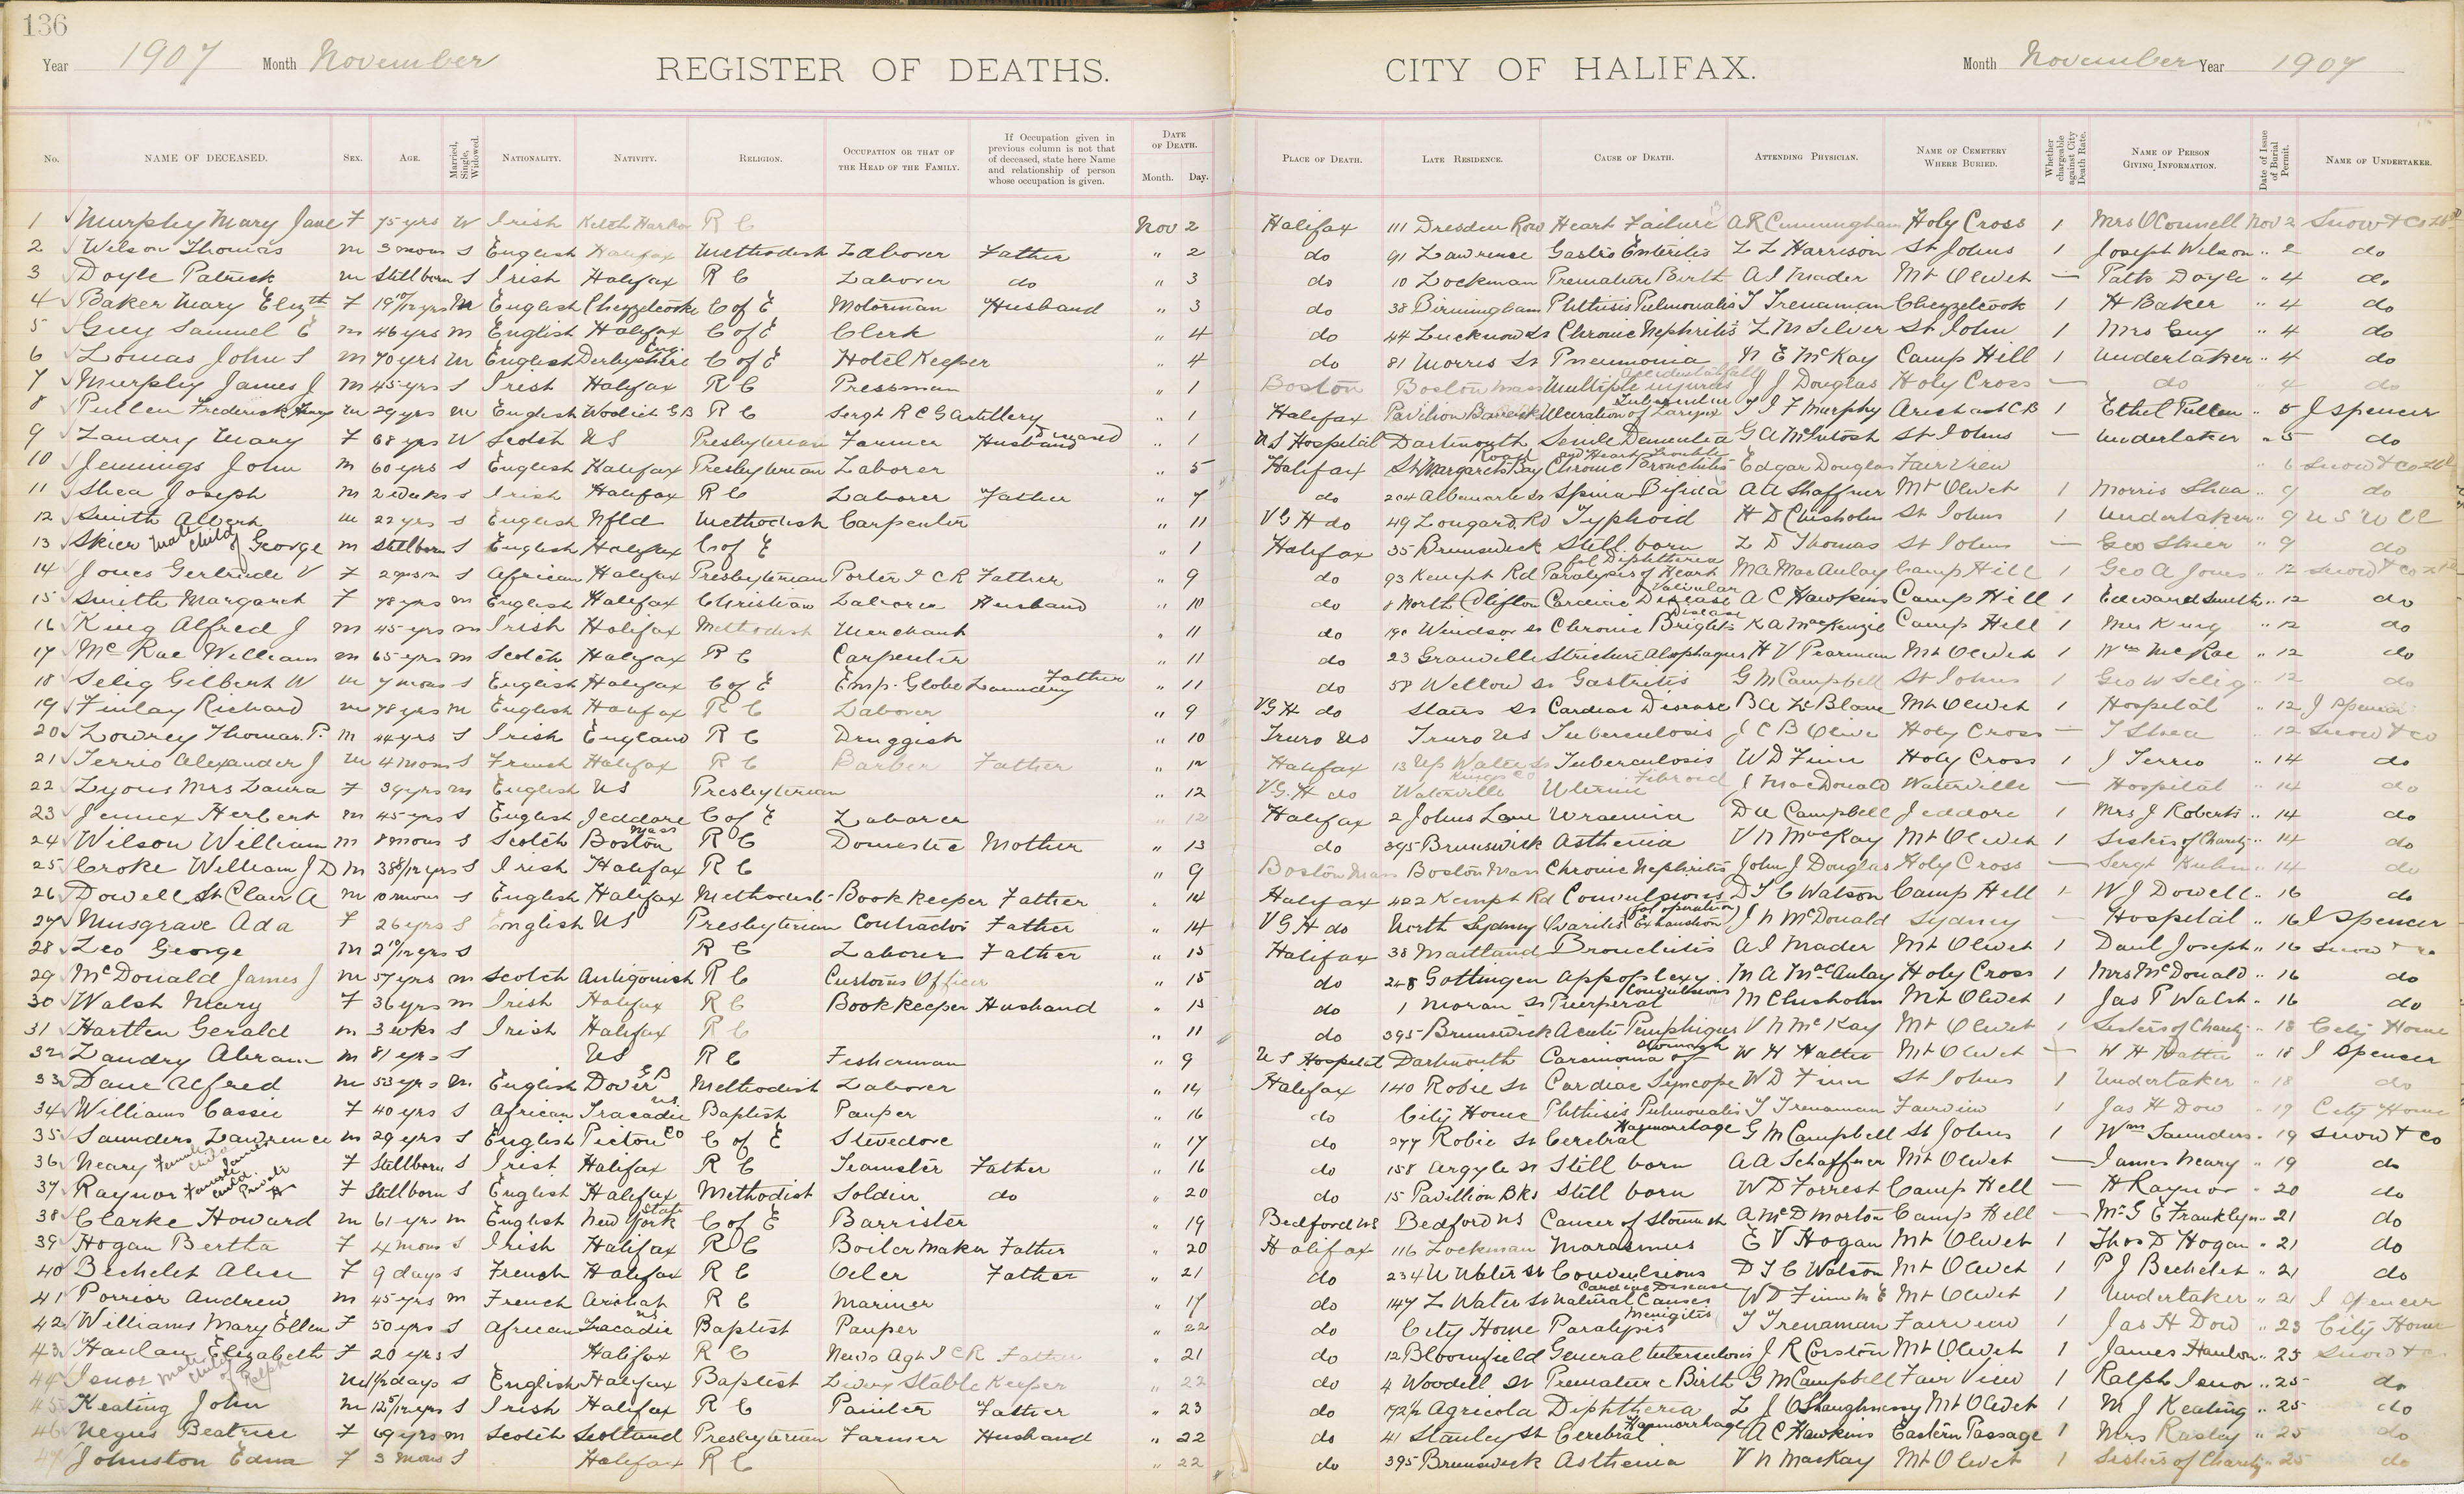 136
Year 1907 Month November REGISTER OF DEATHS. CITY OF HALIFAX. Month November Year 1907
No. NAME OF DECEASED. SEX. AGE. Married, Single, Widowed. NATIONALITY. NATIVITY. RELIGION. OCCUPATION OR THAT OF THE HEAD OF THE FAMILY. If Occupation given in previous column is not that of deceased, state here Name and relationship of person whose occupation is given. DATE OF DEATH. Month. Day. PLACE OF DEATH. LATE RESIDENCE. CAUSE OF DEATH. ATTENDING PHYSICIAN. NAME OF CEMETERY WHERE BURIED. Whether chargeable against City Death Rate. NAME OF PERSON GIVING INFORMATION. Date of Issue of Burial Permit. NAME OF UNDERTAKER.
1 Murphy Mary Jane F 75 yrs W Irish Ketch Harbor R C Nov 2 Halifax 111 Dresden Row Heart Failure A R Cunningham Holy Cross 1 Mrs OConnell Nov 2 Snow & Co Ltd
2 Wilson Thomas M 3 mons S English Halifax Methodist Laborer Father " 2 do 91 Lawrence Gastro Enteritis L L Harrison St Johns 1 Joseph Wilson " 2 do
3 Doyle Patrick M Stillborn S Irish Halifax R C Laborer do " 3 do 10 Lockman Premature Birth A I Mader Mt Olivet — Patk Doyle " 4 do
4 Baker Mary Elizth F 19 yrs M English Chezzetcooke C of E Motorman Husband " 3 do 38 Birmingham Phthisis Pulmonalis T Trenaman Chezzetcook 1 H Baker " 4 do
5 Guy Samuel E M 46 yrs M English Halifax C of E Clerk " 4 do 44 Lucknow St Chronic Nephritis L M Silver St John 1 Mrs Guy " 4 do
6 Lomas John S M 70 yrs M English Derbyshire Eng. C of E Hotel Keeper " 4 do 81 Morris St Pneumonia N E McKay Camp Hill 1 Undertaker " 4 do
7 Murphy James J M 45 yrs S Irish Halifax R C Pressman " 1 Boston Boston Mass Multiple injuries Accidental fall J J Douglas Holy Cross — do " 4 do
8 Pullen Frederick Henry M 29 yrs M English Woolich G B R C Sergt R C G Artillery " 1 Halifax Pavilion Barracks Ulceration of Larynx Tubercular T J F Murphy Arichat C B 1 Ethel Pullen " 5 J Spencer
9 Landry Mary F 68 yrs W Scotch N S Presbyterian Farmer Husband " 1 N S Hospital Dartmouth Senile Dementia G A McIntosh St Johns — Undertaker " 5 do
10 Jennings John M 60 yrs S English Halifax Presbyterian Laborer " 5 Halifax St Margarets Bay Road Chronic Bronchitis and Heart Trouble Edgar Douglas Fair View " 6 Snow & Co Ltd
11 Shea Joseph M 2 weeks S Irish Halifax R C Laborer Father " 7 do 204 Albemarle St Spina Bifida A A Shaffner Mt Olivet 1 Morris Shea " 9 do
12 Smith Albert M 22 yrs S English Nfld Methodist Carpenter " 11 V G H do 49 Longard Rd Typhoid H D Chisholm St Johns 1 Undertaker " 9
13 Skier Male Child of George M Stillborn S English Halifax C of E " 1 Halifax 35 Brunswick Still born L D Thomas St Johns — Geo Skier " 9 do
14 Jones Gertrude V F S African Halifax Presbyterian Porter I C R Father " 9 do 93 Kempt Rd Paralysis of Heart fol Diphtheria M A MacAulay Camp Hill 1 Geo A Jones " 12 Snow & Co Ltd
15 Smith Margaret F 78 yrs M English Halifax Christian Laborer Husband " 10 do 8 North Clifton Cardiac Valvular Disease A C Hawkins Camp Hill 1 Edward Smith " 12 do
16 King Alfred J M 45 yrs M Irish Halifax Methodist Merchant " 11 do 190 Windsor St Chronic Brights Disease K A MacKenzie Camp Hill 1 Mrs King " 12 do
17 McRae William M 65 yrs M Scotch Halifax R C Carpenter " 11 do 23 Granville Stricture Aesophagus H V Pearman Mt Olivet 1 Wm McRae " 12 do
18 Selig Gilbert W M 7 mons S English Halifax C of E Emp. Globe Laundry Father " 11 do 58 Willow St Gastritis G M Campbell St Johns 1 Geo W Selig " 12 do
19 Finlay Richard M 78 yrs M English Halifax R C Laborer " 9 V G H do Stairs St Cardiac Disease B A LeBlanc Mt Olivet 1 Hospital " 12 J Spencer
20 Lowrey Thomas P. M 44 yrs S Irish England R C Druggist " 10 Truro NS Truro NS Tuberculosis J C B Olive Holy Cross — T Shea " 12 Snow & Co
21 Terrio Alexander J M 4 mons S French Halifax R C Barber Father " 12 Halifax 13 Up Water St Tuberculosis W D Finn Holy Cross 1 J Terrio " 14 do
22 Lyons Mrs Laura F 39 yrs M English NS Presbyterian " 12 V.G.H do Waterville Kings Co Uterine Fibroid J MacDonald Waterville — Hospital " 14 do
23 Jennex Herbert M 45 yrs S English Jeddore C of E Laborer " 12 Halifax 2 Johns Lane Uraemia D A Campbell Jeddore 1 Mrs J Roberts " 14 do
24 Wilson William M 8 mons S Scotch Boston Mass R C Domestic Mother " 13 do 395 Brunswick Asthenia V N MacKay Mt Olivet 1 Sisters of Charity " 14 do
25 Croke William J D M 38 8/12 yrs S Irish Halifax R C " 9 Boston Mass Boston Mass Chronic Nephritis John J Douglas Holy Cross — Sergt Kuhn " 14 do
26 Dowell St Clair A M mons S English Halifax Methodist Book keeper Father " 14 Halifax 422 Kempt Rd Convulsions D T C Watson Camp Hill 1 W J Dowell " 16 do
27 Musgrave Ada F 26 yrs S English NS Presbyterian Contractor Father " 14 V G H do North Sydney Ovaritis Exhaustion (fol operation) J N McDonald Sydney — Hospital " 16 J Spencer
28 Leo George M 2 10/12 yrs S R C Laborer Father " 15 Halifax 38 Maitland Bronchitis A I Mader Mt Olivet 1 Danl Joseph " 16 Snow & Co
29 McDonald James J M 57 yrs M Scotch Antigonish R C Customs Officer " 15 do 248 Gottingen Appoplexy M A MacAulay Holy Cross 1 Mrs McDonald " 16 do
30 Walsh Mary F 36 yrs M Irish Halifax R C Book keeper Husband " 15 do 1 Moran St Puerperal Convulsions M Chisholm Mt Olivet 1 Jas P Walsh " 16 do
31 Hartlen Gerald M 3 wks S Irish Halifax R C " 11 do 395 Brunswick Acute Pemphigus V N McKay Mt Olivet 1 Sisters of Charity " 18 City Home
32 Landry Abram M 81 yrs S NS R C Fisherman " 9 N S Hospital Dartmouth Carcinoma of Stomach W H Hattie Mt Olivet — W H Hattie " 18 J Spencer
33 Dane Alfred M 53 yrs M English Dover G B Methodist Laborer " 14 Halifax 140 Robie St Cardiac Syncope W D Finn St Johns 1 Undertaker " 18 do
34 Williams Cassie F 40 yrs S African Tracadie NS Baptist Pauper " 16 do City Home Phthisis Pulmonalis T Trenaman Fairview 1 Jas H Dow " 19 City Home
35 Saunders Lawrence M 29 yrs S English Pictou Co C of E Stevedore " 17 do 277 Robie St Cerebral Haemorrhage G M Campbell St Johns 1 Wm Saunders " 19 Snow & Co
36 Neary Female Child James F Stillborn S Irish Halifax R C Teamster Father " 16 do 158 Argyle St Still born A A Schaffner Mt Olivet — James Neary " 19 do
37 Raynor Female Child Private H F Stillborn S English Halifax Methodist Soldier do " 20 do 15 Pavillion Bks Still born W D Forrest Camp Hill — H Raynor " 20 do
38 Clarke Howard M 61 yrs M English New York State C of E Barrister " 19 Bedford NS Bedford NS Cancer of Stomach A McD Morton Camp Hill — Mr G E Franklyn " 21 do
39 Hogan Bertha F 4 mons S Irish Halifax R C Boiler Maker Father " 20 Halifax 116 Lockman Marasmus E V Hogan Mt Olivet 1 Thos D Hogan " 21 do
40 Bechelet Alice F 9 days S French Halifax R C Oiler Father " 21 do 234 U Water St Convulsions D T C Watson Mt Olivet 1 P J Bechelet " 21 do
41 Porrior Andrew M 45 yrs M French Arichat R C Mariner " 17 do 147 L Water St Natural Causes Cardiac Disease W D Finn M E Mt Olivet 1 Undertaker " 21 J Spencer
42 Williams Mary Ellen F 50 yrs S African Tracadie NS Baptist Pauper " 22 do City Home Paralysis T Trenaman Fairview 1 Jas H Dow " 23 City Home
43 Hanlan Elizabeth F 20 yrs S Halifax R C News Agt I C R Father " 21 do 12 Bloomfield General tuberculosis Menigitis J R Corston Mt Olivet 1 James Hanlon " 25 Snow & Co
44 Isnor Male Child of Ralph M 1½ days S English Halifax Baptist Livery Stable Keeper " 22 do 4 Woodill St Premature Birth G M Campbell Fair View 1 Ralph Isnor " 25 do
45 Keating John M 12 5/12 yrs S Irish Halifax R C Painter Father " 23 do 172½ Agricola Diphtheria L J OShaughnessy Mt Olivet 1 M J Keating " 25 do
46 Negus Beatrice F 69 yrs M Scotch Scotland Presbyterian Farmer Husband " 22 do 41 Stanley St Cerebral Haemorrhage A C Hawkins Eastern Passage 1 Mrs Rasley " 25 do
47 Johnston Edna F 3 mons S Halifax R C " 22 do 395 Brunswick Asthenia V N MacKay Mt Olivet 1 Sisters of Charity " 25 do